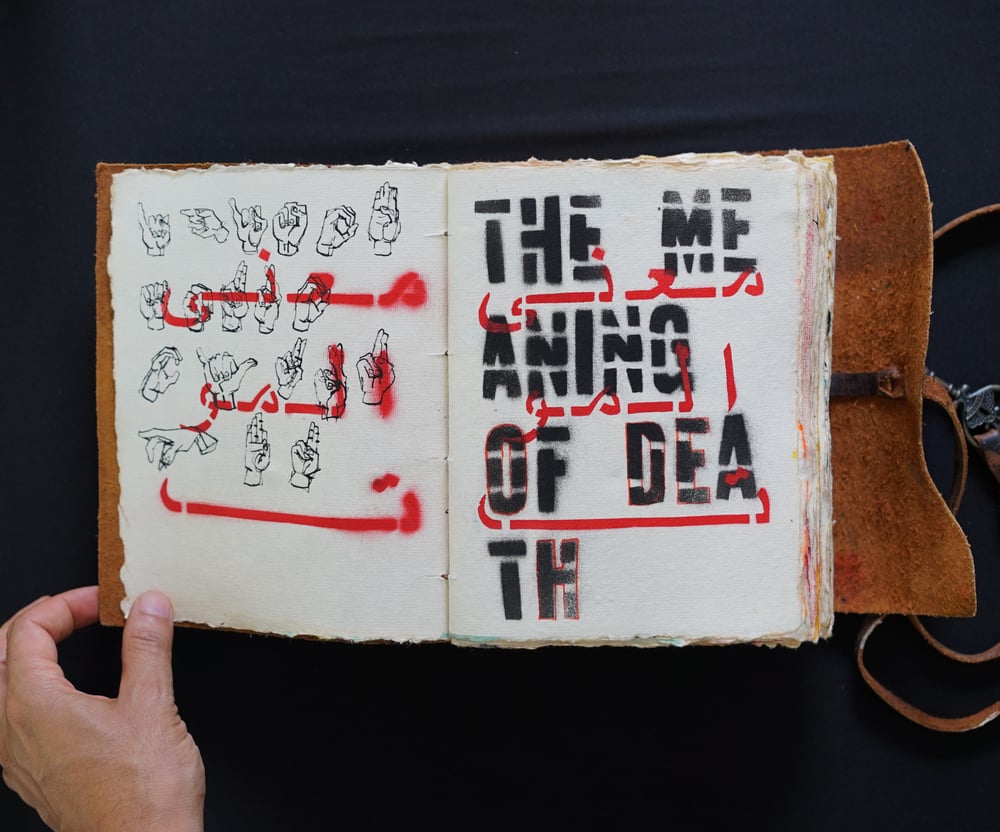 معنى
المو
ت
THE ME
معنى
ANING
المو
OF DEA
ت
TH